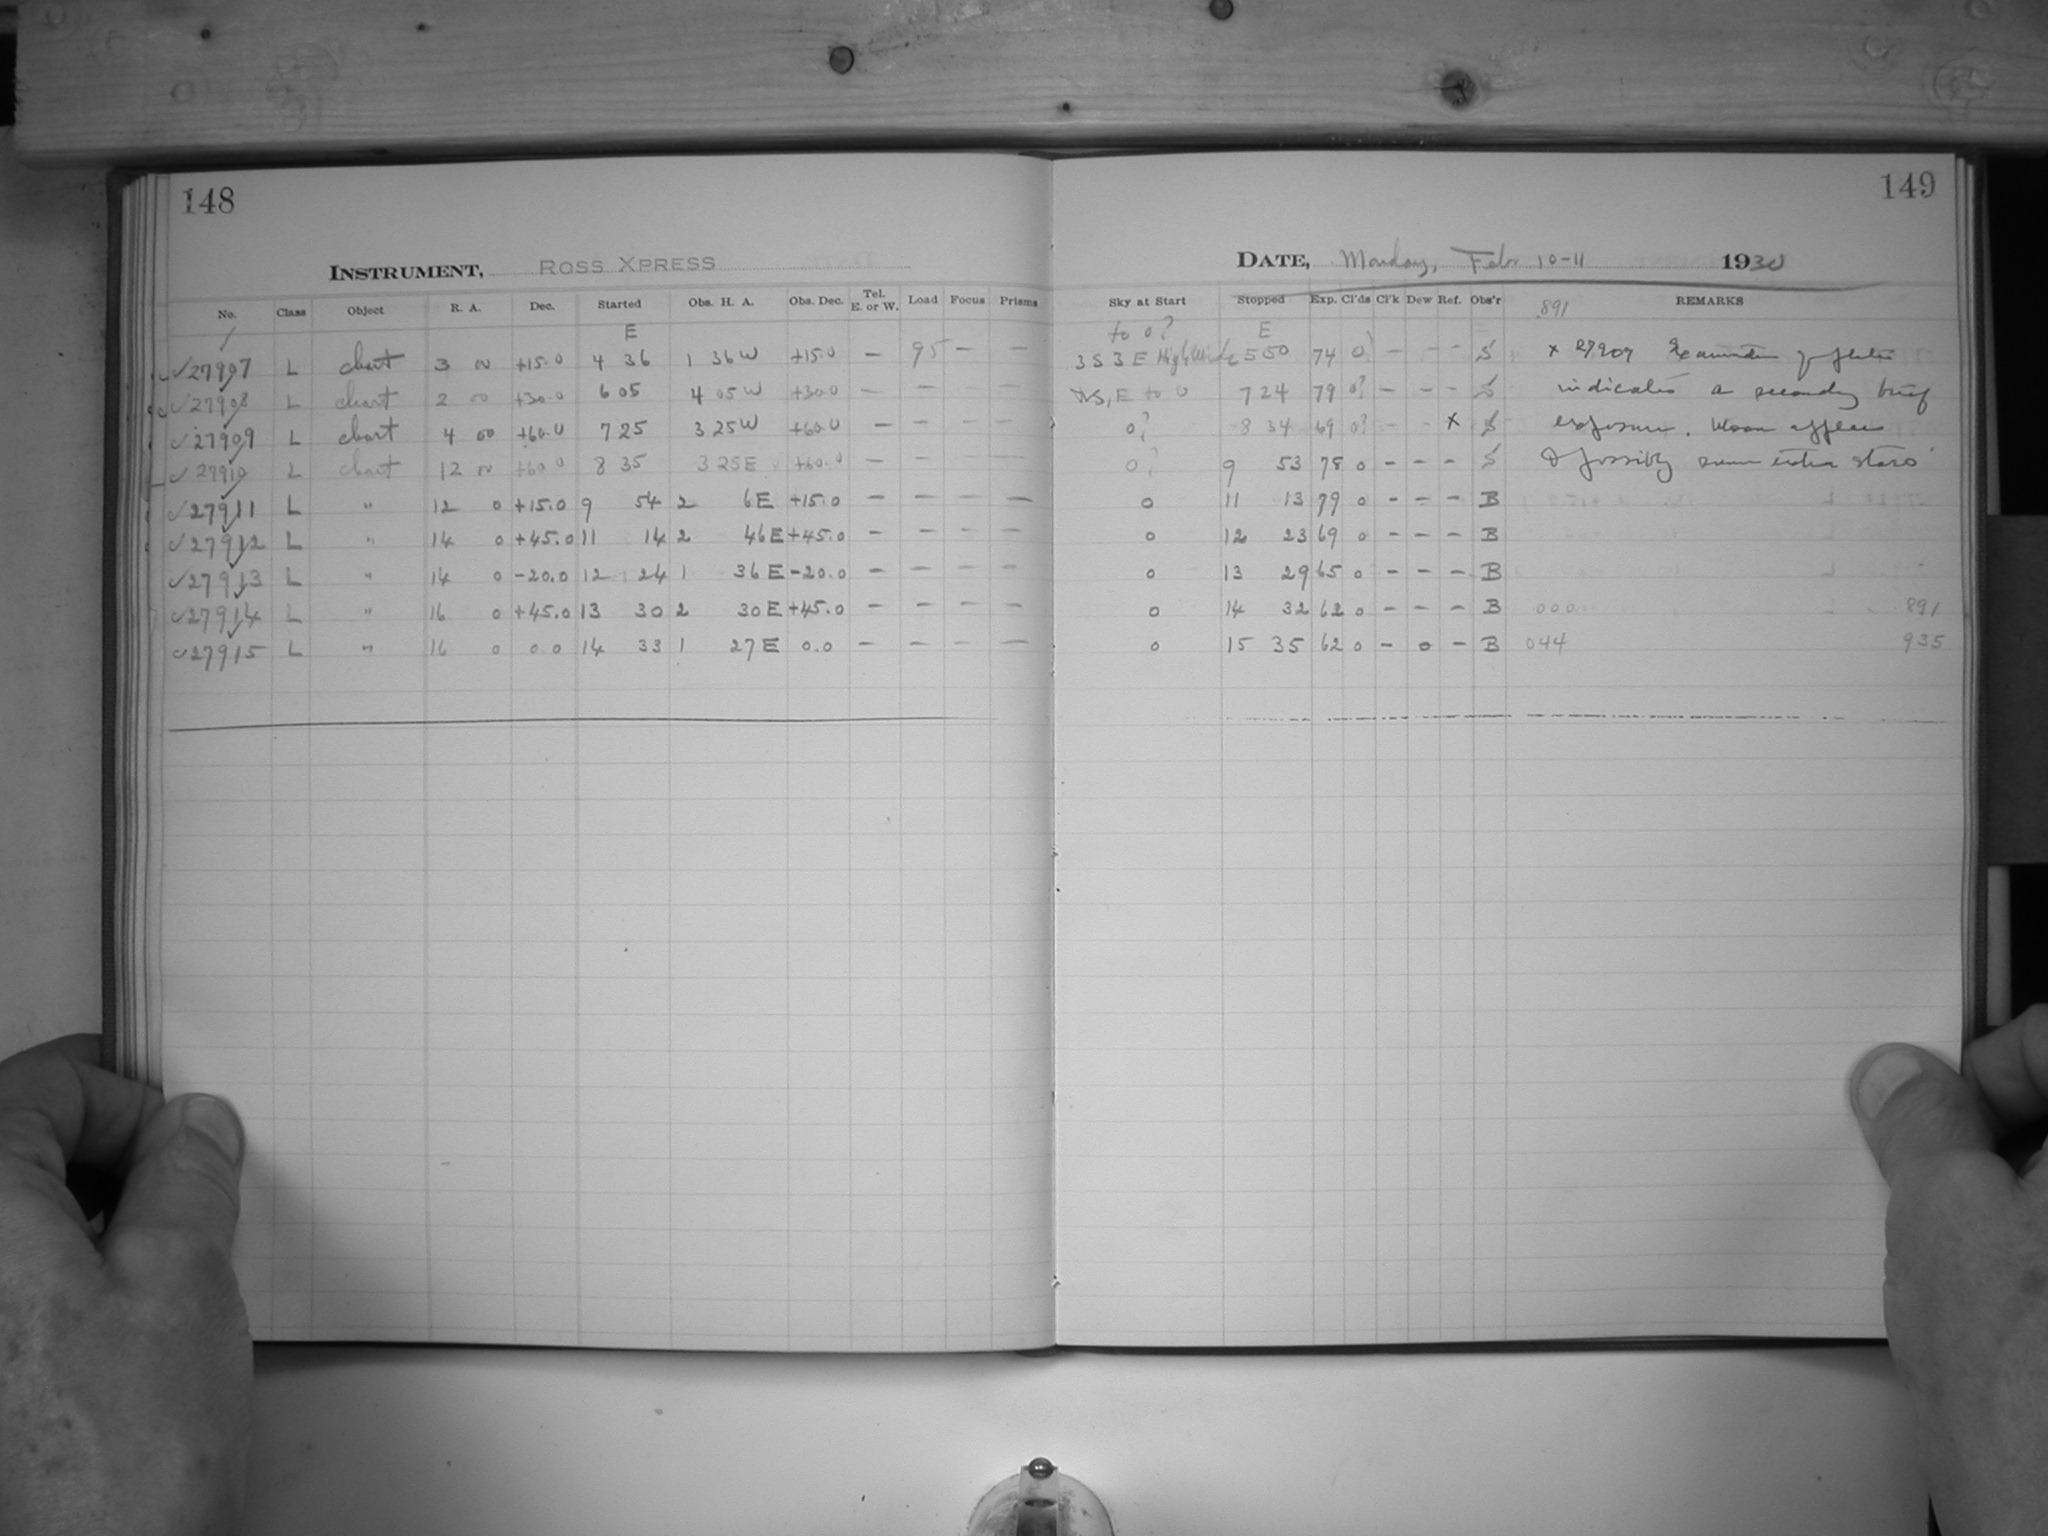 148
149
INSTRUMENT, ROSS XPRESS
DATE, Monday, Febr 10-11 1930
No. Class Object R. A. Dec. Started Obs. H. A. Obs. Dec. Tel. E. or W. Load Focus Prisms Sky at Start Stopped Exp. Cl'ds Cl'k Dew Ref. Obs'r 891 REMARKS
E to 0? E
✓27907 L chart 3 00 +15.0 4 36 1 36 W +15.0 — 95 — — 3 S 3 E High 5 50 74 0 — - - S x 27907 of plate
✓27908 L chart 2 00 +30.0 6 05 4 05 W +30.0 — — — — E to 0 7 24 79 0? — - - S indicates a secondary brief
✓27909 L chart 4 00 +60.0 7 25 3 25 W +60.0 — — — — 0? 8 34 69 0? - - x S exposure. Moon appears
✓27910 L chart 12 00 +60.0 8 35 3 25 E +60.0 — — — — 0? 9 53 78 0 - - - S & possibly some extra stars
✓27911 L " 12 0 +15.0 9 54 2 6 E +15.0 — — — — 0 11 13 79 0 - - - B
✓27912 L " 14 0 +45.0 11 14 2 46 E +45.0 — — — — 0 12 23 69 0 - - - B
✓27913 L " 14 0 -20.0 12 24 1 36 E -20.0 — — — — 0 13 29 65 0 - - - B
✓27914 L " 16 0 +45.0 13 30 2 30 E +45.0 — — — — 0 14 32 62 0 - - - B 000 891
✓27915 L " 16 0 0.0 14 33 1 27 E 0.0 — — — — 0 15 35 62 0 - 0 - B 044 935